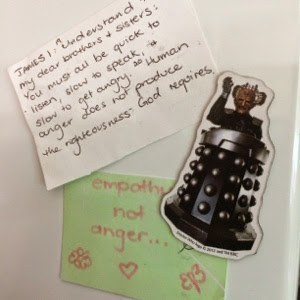 JAMES 1: "Understand
my dear brothers & sisters:
You must all be quick to
listen, slow to speak, &
slow to get angry. 20 Human
anger does not produce
the righteousness God requires.
empathy
not
anger...